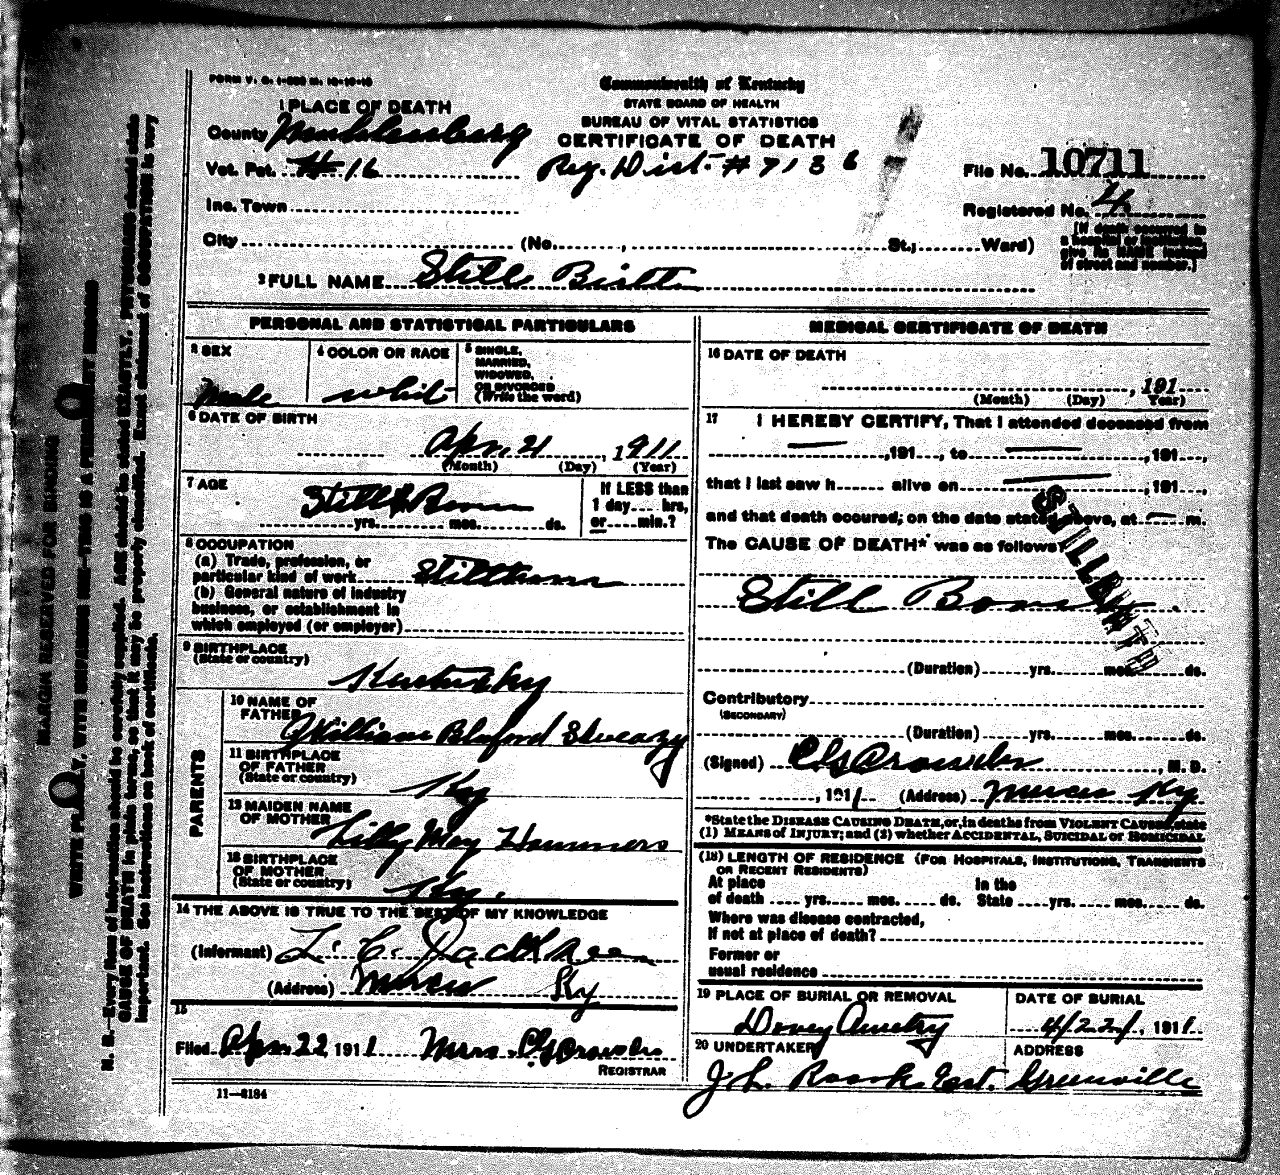 FORM V. S. 1-
Commonwealth of Kentucky
STATE BOARD OF HEALTH
BUREAU OF VITAL STATISTICS
CERTIFICATE OF DEATH
1 PLACE OF DEATH
County Muhlenburg
Vot. Pct. #16
Reg. Dist. # 7136
File No. 10711
Inc. Town
Registered No. 4
City (No. , St.; Ward)
[If death occurred in
a hospital or institution,
give its NAME instead
of street and number.]
2 FULL NAME Still Birth
PERSONAL AND STATISTICAL PARTICULARS
3 SEX
Male
4 COLOR OR RACE
whit
5 SINGLE,
MARRIED,
WIDOWED,
OR DIVORCED
(Write the word)
6 DATE OF BIRTH
Apr. 21, 1911
(Month) (Day) (Year)
7 AGE
Still Born
yrs. mos. ds.
If LESS than
1 day hrs,
or min.?
8 OCCUPATION
(a) Trade, profession, or
particular kind of work Stillborn
(b) General nature of industry
business, or establishment in
which employed (or employer)
9 BIRTHPLACE
(State or country)
Kentucky
PARENTS
10 NAME OF
FATHER
William Bluford Sweazy
11 BIRTHPLACE
OF FATHER
(State or country)
Ky
12 MAIDEN NAME
OF MOTHER
Lilly May Hammers
13 BIRTHPLACE
OF MOTHER
(State or country)
Ky.
14 THE ABOVE IS TRUE TO THE BEST OF MY KNOWLEDGE
(Informant) L. C. Jackson
(Address) Mercer Ky
15
Filed Apr 22, 1911 Mrs.
REGISTRAR
11-3184
MEDICAL CERTIFICATE OF DEATH
16 DATE OF DEATH
, 191
(Month) (Day) Year)
17 I HEREBY CERTIFY, That I attended deceased from
, 191 , to , 191 ,
that I last saw h alive on , 191 ,
and that death occured, on the date stated above, at m.
The CAUSE OF DEATH* was as follows:
STILLBIRTH
Still Born
(Duration) yrs. mos. ds.
Contributory
(SECONDARY)
(Duration) yrs. mos. ds.
(Signed) , M. D.
, 1911 (Address) Mercer Ky
*State the DISEASE CAUSING DEATH, or, in deaths from VIOLENT CAUSES state
(1) MEANS of INJURY; and (2) whether ACCIDENTAL, SUICIDAL or HOMICIDAL
(18) LENGTH OF RESIDENCE (FOR HOSPITALS, INSTITUTIONS, TRANSIENTS
OR RECENT RESIDENTS)
At place
of death yrs. mos. ds.
In the
State yrs. mos. ds.
Where was disease contracted,
If not at place of death?
Former or
usual residence
19 PLACE OF BURIAL OR REMOVAL
DATE OF BURIAL
4/22/, 1911
20 UNDERTAKER
J. L. Roark Est.
ADDRESS
Greenville
MARGIN RESERVED FOR BINDING
WRITE PLAINLY, WITH UNFADING INK—THIS IS A PERMANENT RECORD
N. B.—Every item of information should be carefully supplied. AGE should be stated EXACTLY. PHYSICIANS should state
CAUSE OF DEATH in plain terms, so that it may be properly classified. Exact statement of OCCUPATION is very
important. See instructions on back of certificate.